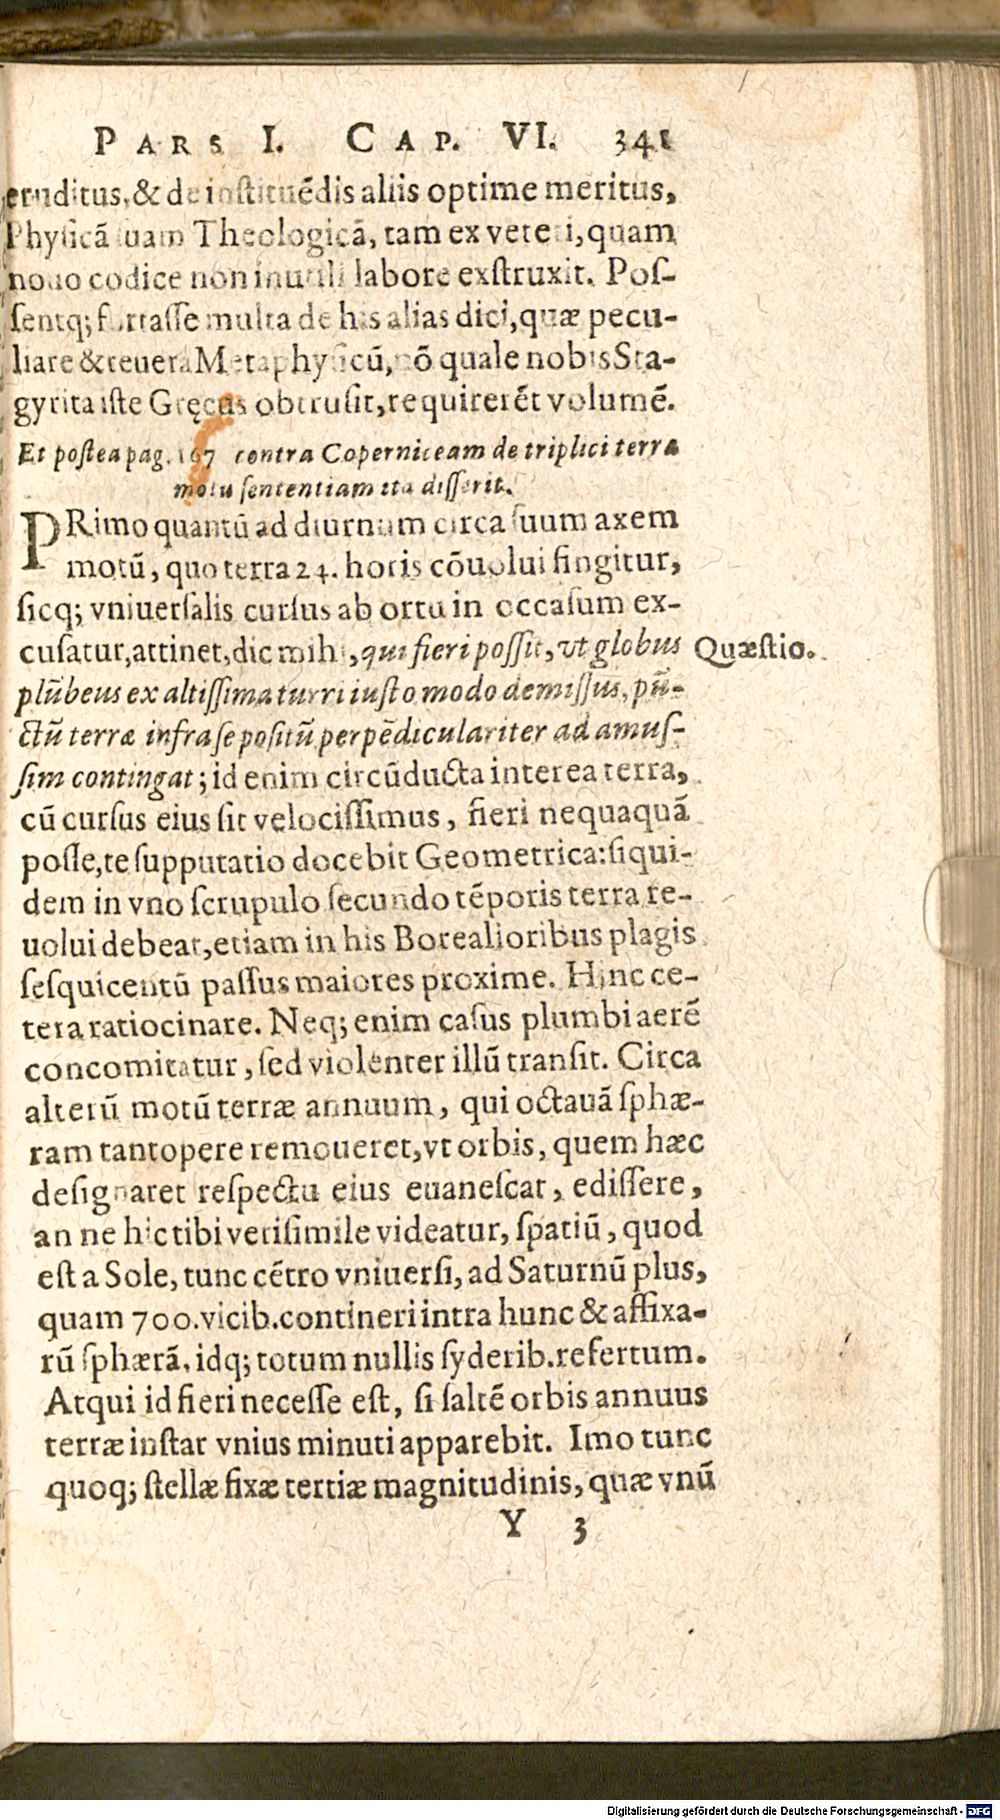 PARS I. CAP. VI. 341
eruditus, & de instituẽdis aliis optime meritus,
Physicã suam Theologicã, tam ex veteri, quam
nouo codice non inutili labore exstruxit. Pos-
sentq; fortasse multa de his alias dici, quæ pecu-
liare & reuera Metaphysicũ, nõ quale nobis Sta-
gyrita iste Gręcus obtrusit, requirerẽt volumẽ.
Et postea pag. 167 contra Coperniceam de triplici terra
motu sententiam ita disserit.
PRimo quantũ ad diurnum circa suum axem
motũ, quo terra 24. horis cõuolui fingitur,
sicq; vniuersalis cursus ab ortu in occasum ex-
cusatur, attinet, dic mihi, qui fieri possit, vt globus
Quæstio.
plũbeus ex altissima turri iusto modo demissus, pũ-
ctũ terræ infra se positũ perpẽdiculariter ad amus-
sim contingat; id enim circũducta interea terra,
cũ cursus eius sit velocissimus, fieri nequaquã
posse, te supputatio docebit Geometrica: siqui-
dem in vno scrupulo secundo tẽporis terra re-
uolui debeat, etiam in his Borealioribus plagis
sesquicentũ passus maiores proxime. Hinc ce-
tera ratiocinare. Neq; enim casus plumbi aerẽ
concomitatur, sed violenter illũ transit. Circa
alterũ motũ terræ annuum, qui octauã sphæ-
ram tantopere remoueret, vt orbis, quem hæc
designaret respectu eius euanescat, edissere,
an ne hic tibi verisimile videatur, spatiũ, quod
est a Sole, tunc cẽtro vniuersi, ad Saturnũ plus,
quam 700. vicib. contineri intra hunc & affixa-
rũ sphærã, idq; totum nullis syderib. refertum.
Atqui id fieri necesse est, si saltẽ orbis annuus
terræ instar vnius minuti apparebit. Imo tunc
quoq; stellæ fixæ tertiæ magnitudinis, quæ vnũ
Y 3
Digitalisierung gefördert durch die Deutsche Forschungsgemeinschaft - DFG